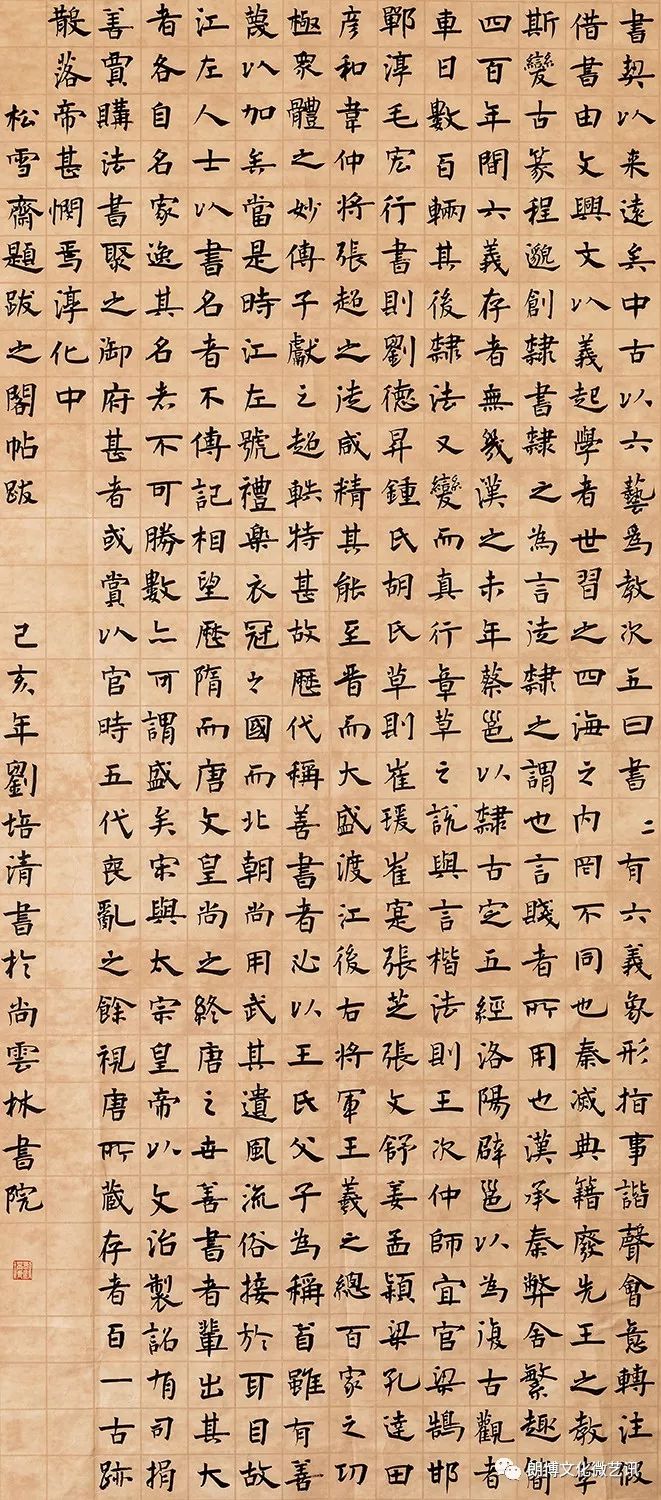 書契以来遠矣中古以六藝為教次五曰書〻有六義象形指事諧聲會意轉注假
借書由文興文以義起學者世習之四海之内罔不同也秦滅典籍廢先王之教李
斯變古篆程邈創隸書隸之為言徒隸之謂也言賤者所用也漢承秦弊舍繁趣簡
四百年間六義存者無幾漢之末年蔡邕以隸古定五經洛陽辟邕以為復古觀者
車日數百輛其後隸法又變而真行章草之說與言楷法則王次仲師宜官梁鵠邯
鄲淳毛宏行書則劉德昇鍾氏胡氏草則崔瑗崔寔張芝張文舒姜孟穎梁孔達田
彥和韋仲將張超之徒咸精其能至晉而大盛渡江後右將軍王羲之總百家之功
極衆體之妙傳子獻之超軼特甚故歷代稱善書者必以王氏父子為稱首雖有善
蔑以加矣當是時江左號禮樂衣冠之國而北朝尚用武其遺風流俗接於耳目故
江左人士以書名者不傳記相望歷隋而唐文皇尚之終唐之世善書者輩出其大
者各自名家逸其名者不可勝數亦可謂盛矣宋與太宗皇帝以文治製詔有司捐
善賈購法書聚之御府甚者或賞以官時五代喪亂之餘視唐所藏存者百一古跡
散落帝甚憫焉淳化中
松雪齋題跋之閣帖跋 己亥年劉培清書於尚雲林書院
朗博文化微艺讯